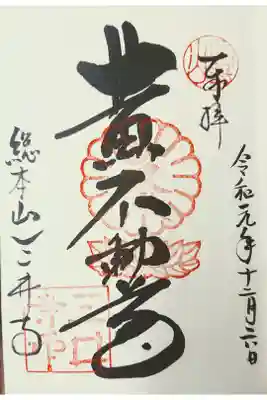 奉拝
令和元年十二月二六日
黄不動尊
総本山三井寺